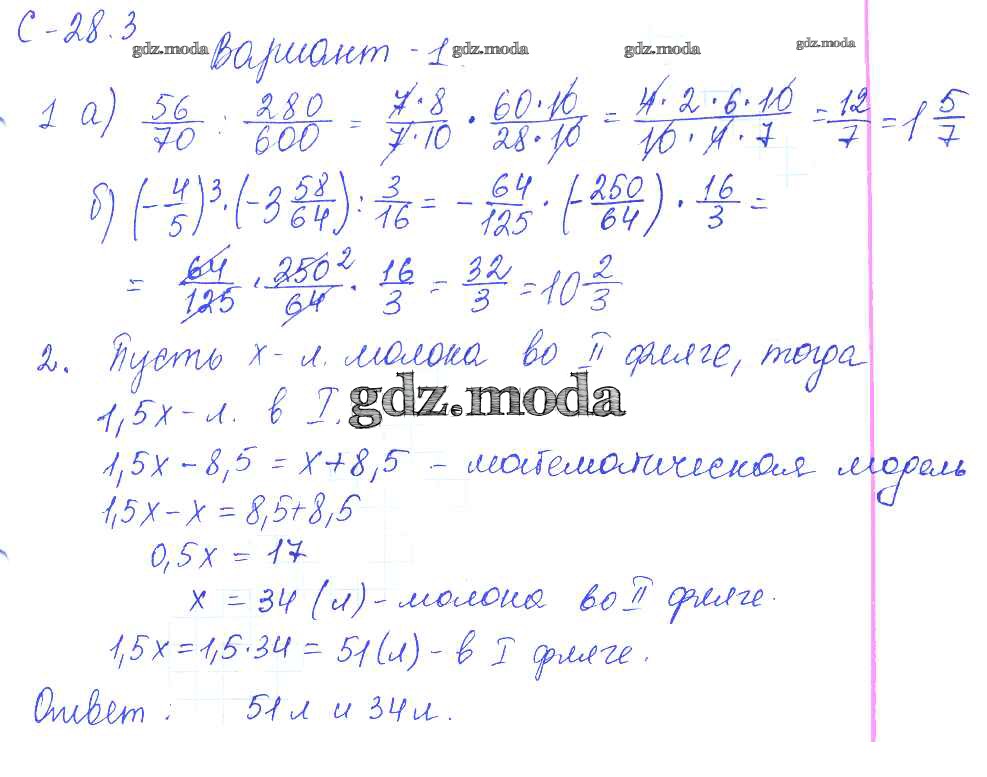 С-28.3
gdz.moda gdz.moda gdz.moda gdz.moda
Вариант - 1.
1 а) 56/70 : 280/600 = 7·8/7·10 · 60·10/28·10 = 4·2·6·10/10·4·7 = 12/7 = 1 5/7
б) (-4/5)³·(-3 58/64) : 3/16 = -64/125 · (-250/64) · 16/3 =
= 64/125 · 250²/64 · 16/3 = 32/3 = 10 2/3
2. Пусть х - л. молока во II фляге, тогда
1,5х - л. в I.
gdz.moda
1,5х - 8,5 = х + 8,5 - математическая модель
1,5х - х = 8,5 + 8,5
0,5х = 17
х = 34 (л) - молока во II фляге.
1,5х = 1,5·34 = 51 (л) - в I фляге.
Ответ: 51 л и 34 л.